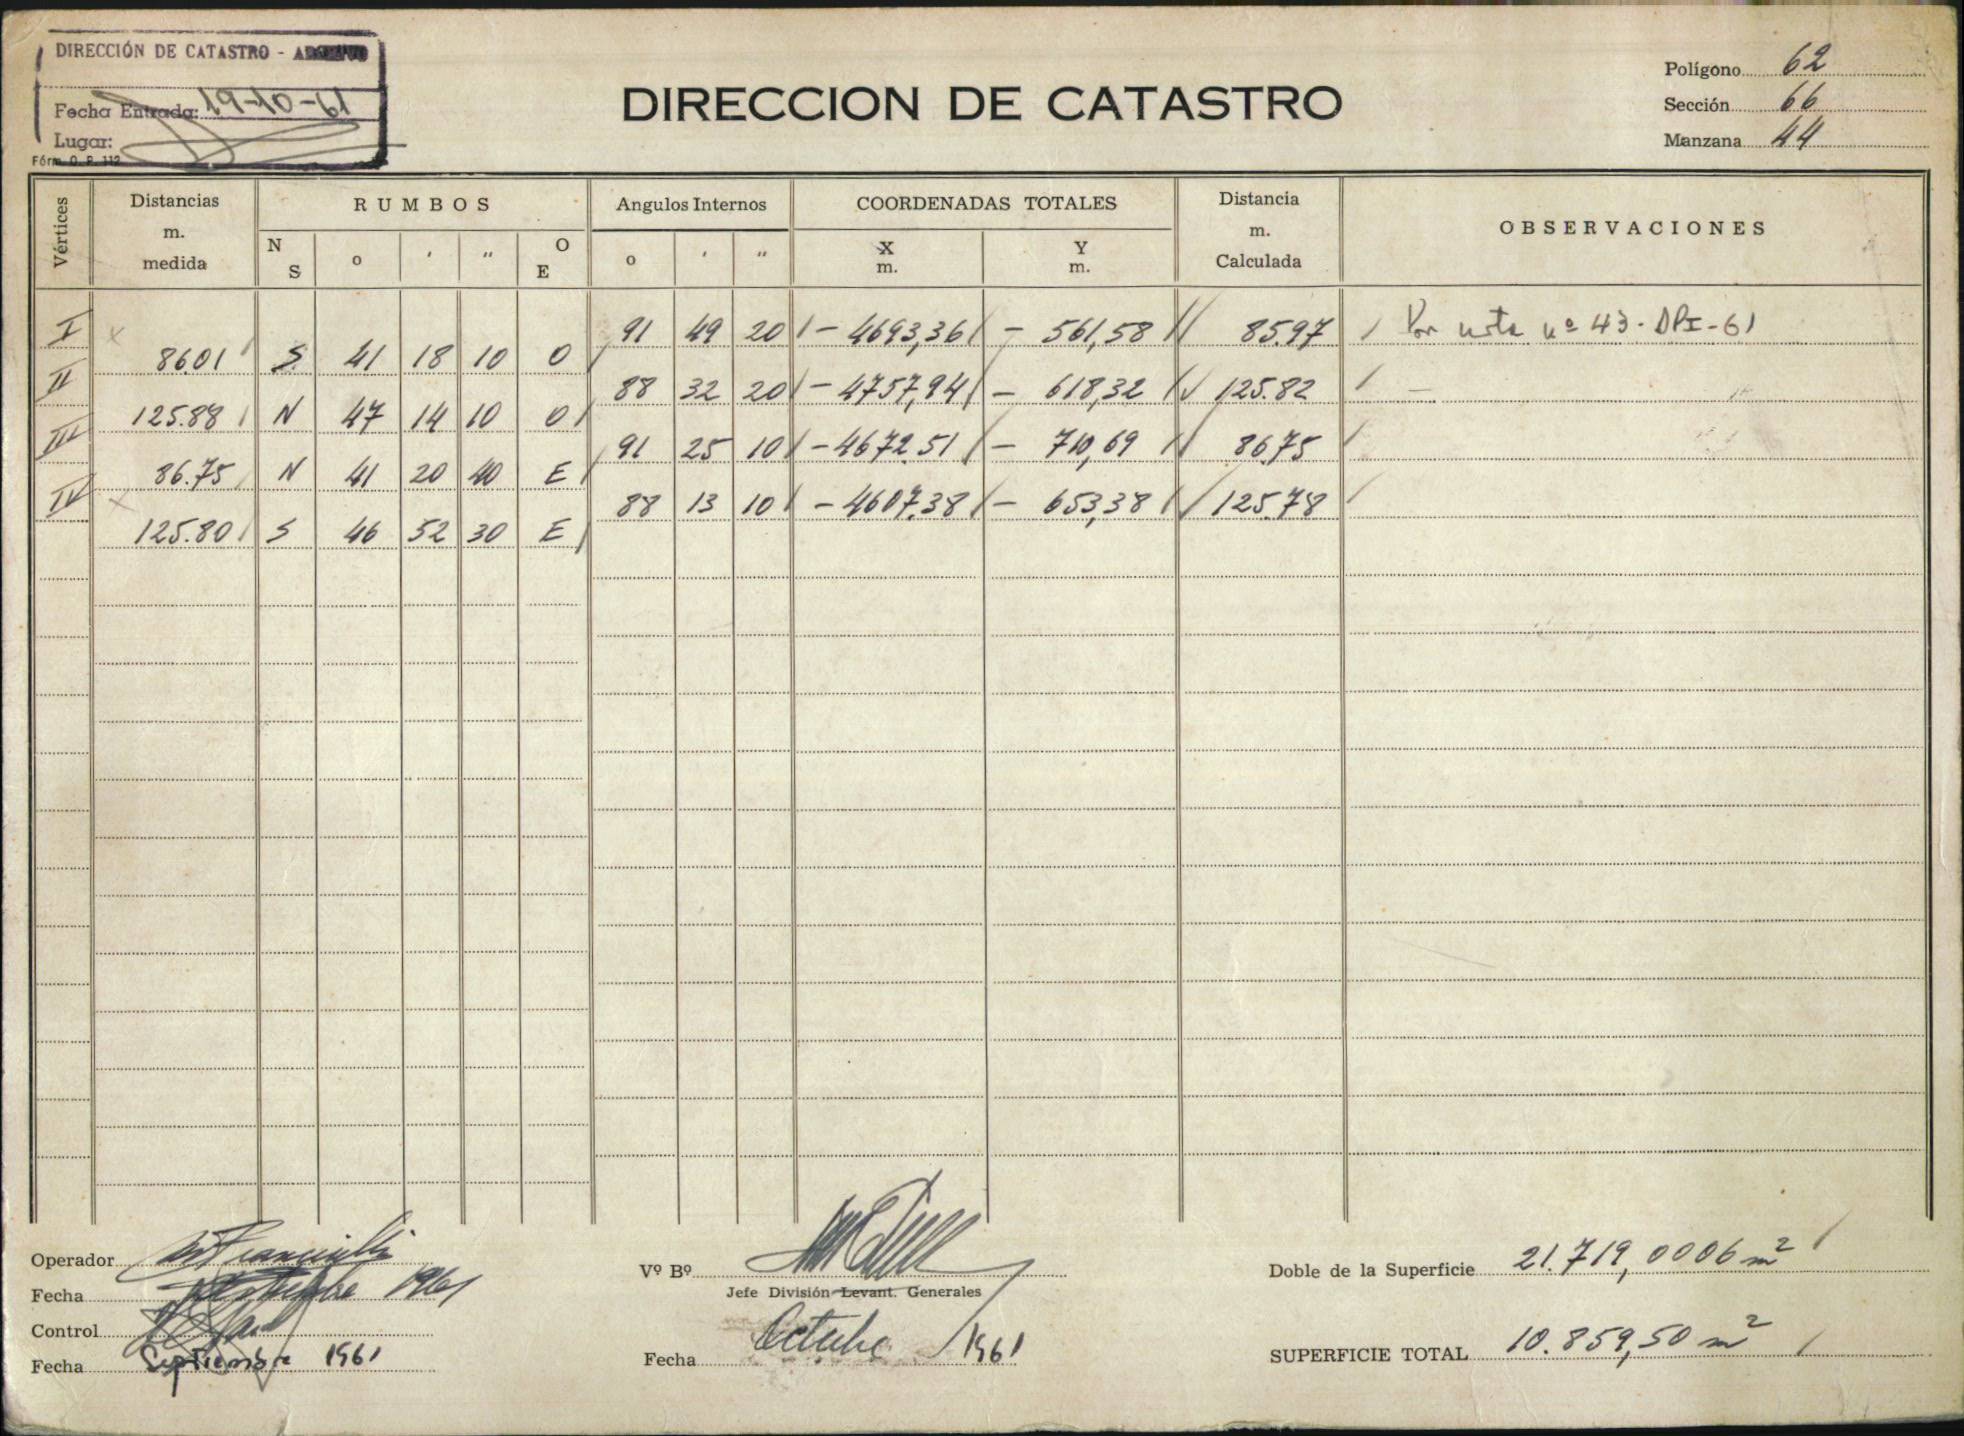 DIRECCIÓN DE CATASTRO -
Fecha Entrada: 19-10-61
Lugar:
Fórm. O. P. 112
DIRECCION DE CATASTRO
Polígono 62
Sección 66
Manzana 44
Vértices
Distancias m. medida
RUMBOS
N S o ' " O E
Angulos Internos
o ' "
COORDENADAS TOTALES
X m. Y m.
Distancia m. Calculada
OBSERVACIONES
I 91 49 20 - 4693,36 - 561,58 85.97 Por nota nº 43-DPI-61
86.01 S 41 18 10 O
II 88 32 20 - 4757,94 - 618,32 125.82 —
125.88 N 47 14 10 O
III 91 25 10 - 4672.51 - 710,69 86.75
86.75 N 41 20 40 E
IV 88 13 10 - 4607.38 - 653,38 125.78
125.80 S 46 52 30 E
Operador
Fecha 1961
Control
Fecha Septiembre 1961
Vº Bº
Jefe División Levant. Generales
Fecha Octubre 1961
Doble de la Superficie 21.719,0006 m²
SUPERFICIE TOTAL 10.859,50 m²